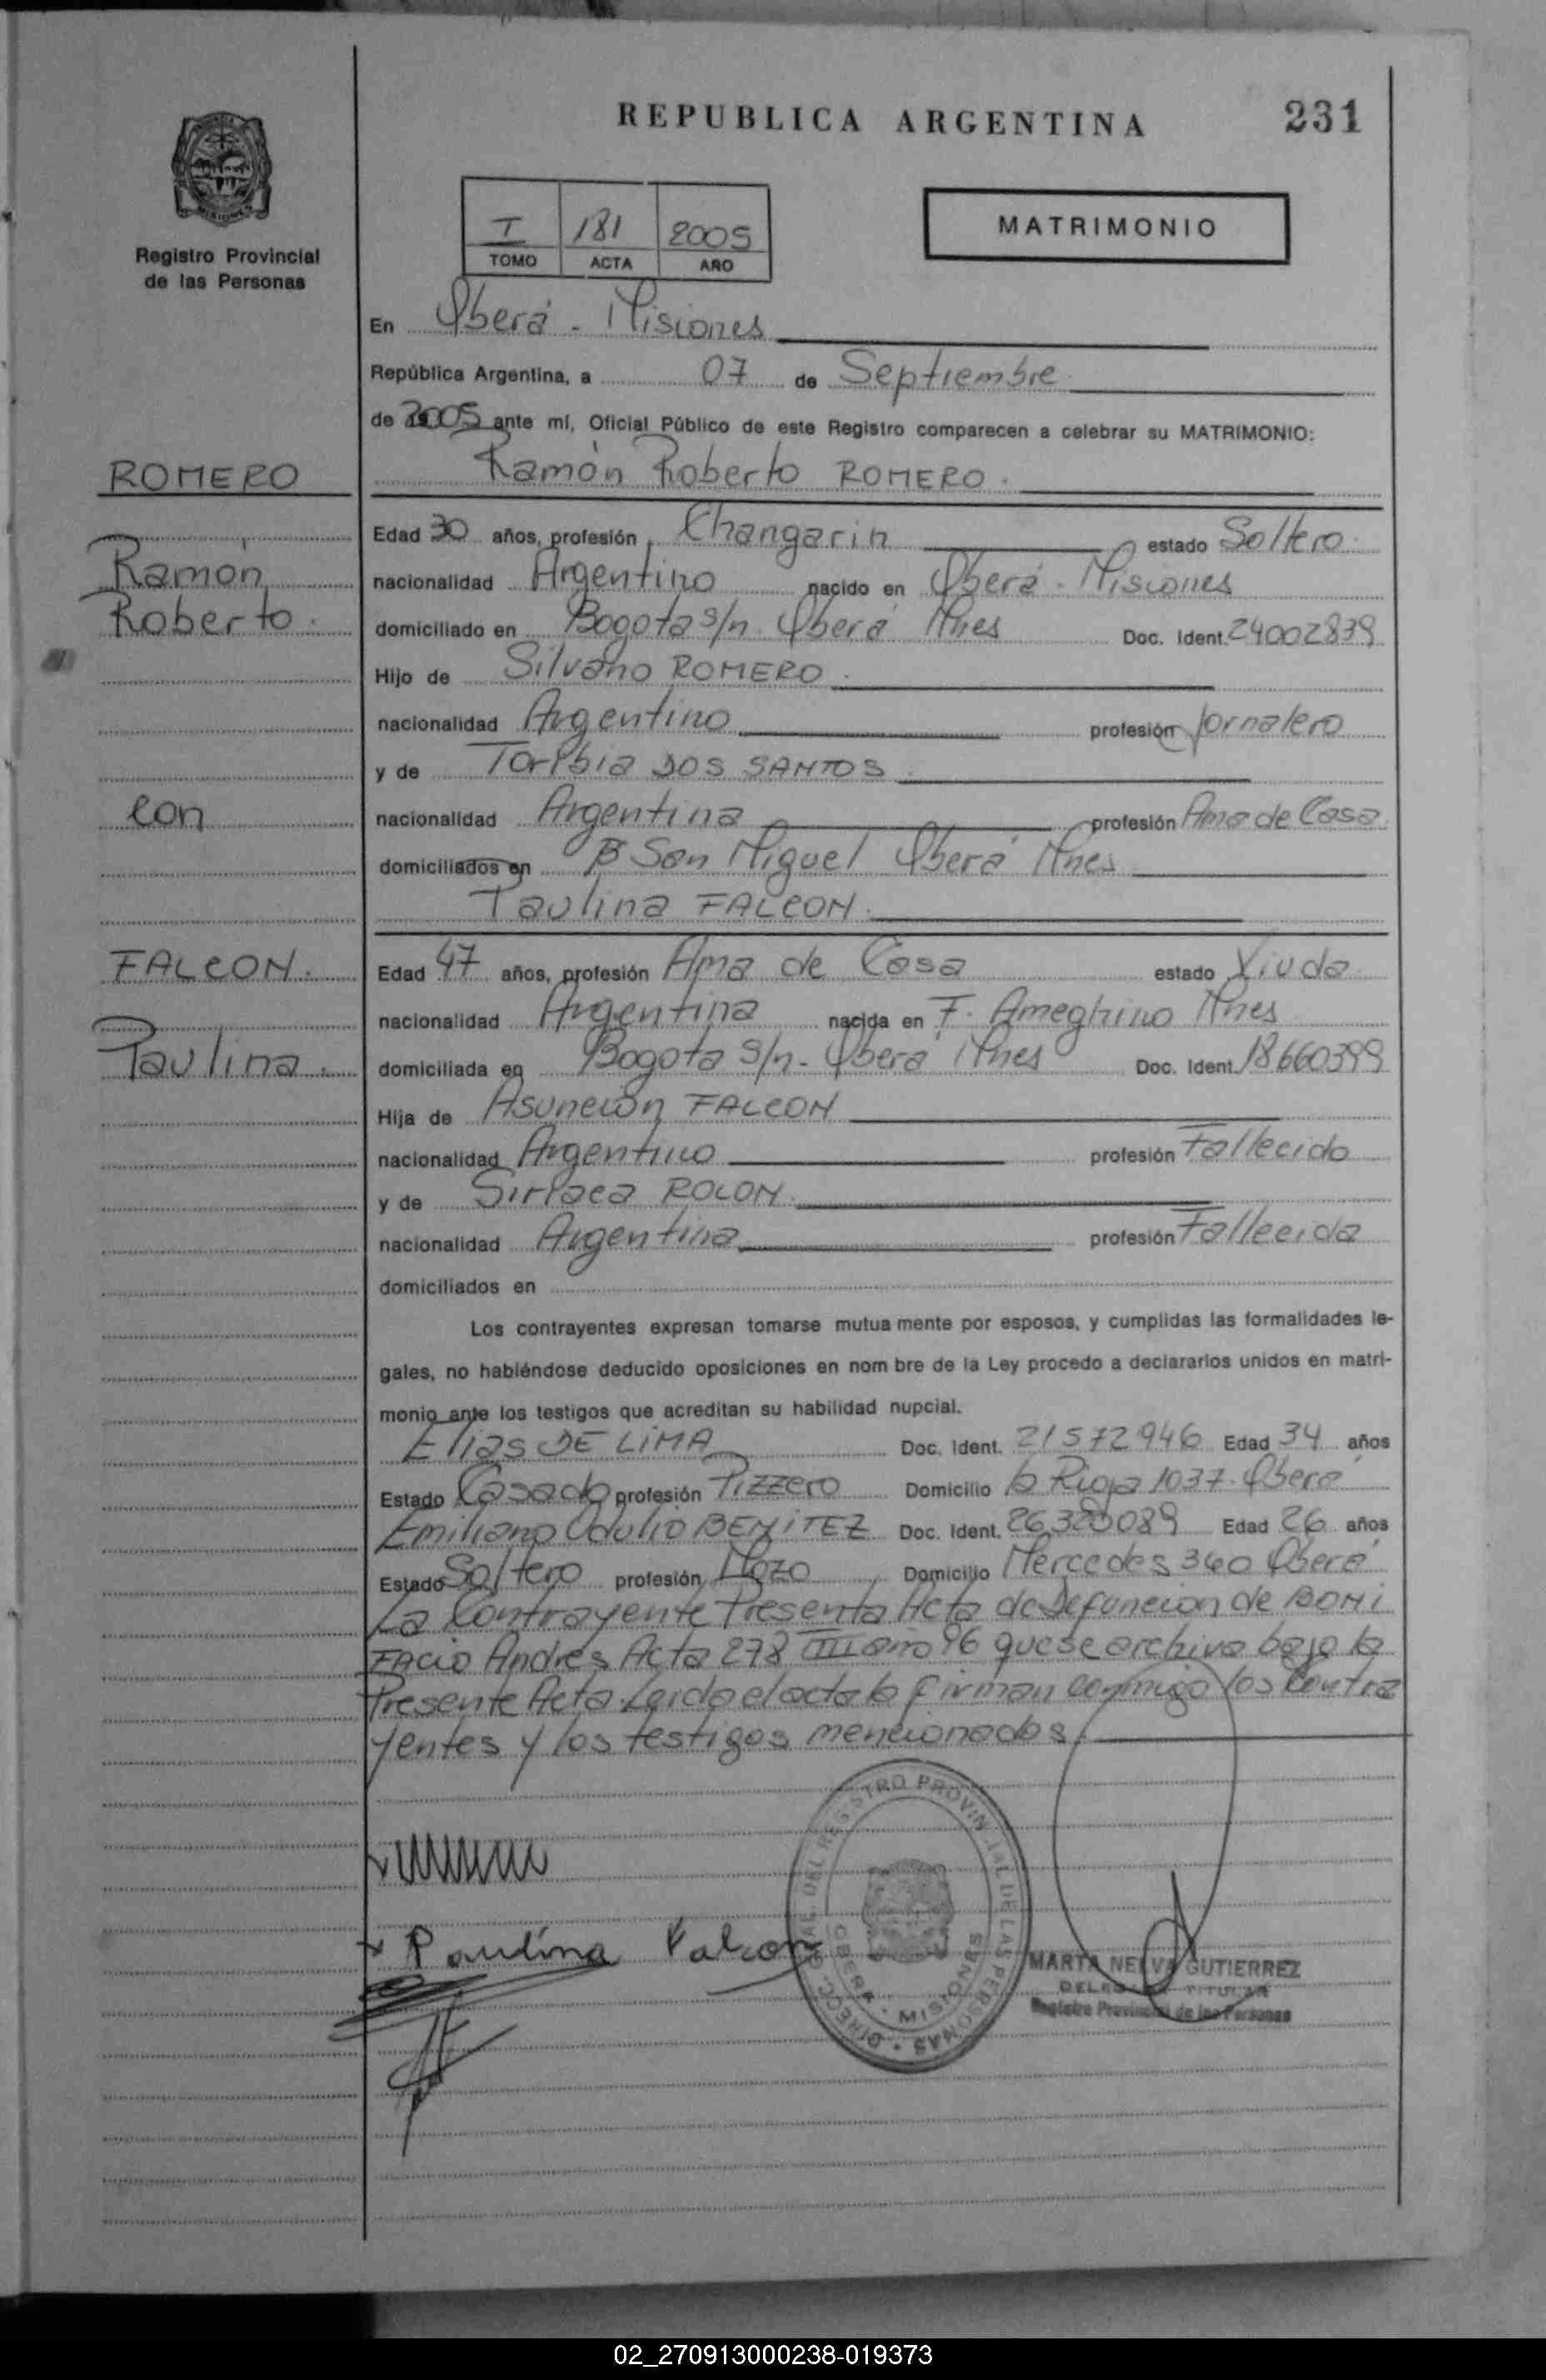 REPUBLICA ARGENTINA
231
Registro Provincial
de las Personas
I 181 2005
TOMO ACTA AÑO
MATRIMONIO
En Oberá - Misiones
República Argentina, a 07 de Septiembre
de 2005 ante mí, Oficial Público de este Registro comparecen a celebrar su MATRIMONIO:
ROMERO
Ramón Roberto ROMERO.
Ramón
Roberto.
Edad 30 años, profesión Changarin estado Soltero.
nacionalidad Argentino nacido en Oberá - Misiones
domiciliado en Bogota s/n. Oberá Mnes Doc. Ident. 24002839
Hijo de Silvano ROMERO
nacionalidad Argentino profesión Jornalero
y de Toribia DOS SANTOS
con
nacionalidad Argentina profesión Ama de Casa
domiciliados en B San Miguel Oberá Mnes
Paulina FALCON.
FALCON.
Paulina.
Edad 47 años, profesión Ama de Casa estado Viuda
nacionalidad Argentina nacida en F. Ameghino Mnes
domiciliada en Bogota s/n - Oberá Mnes Doc. Ident. 18660399
Hija de Asuncion FALCON
nacionalidad Argentino profesión Fallecido
y de Siriaca ROLON.
nacionalidad Argentina profesión Fallecida
domiciliados en
Los contrayentes expresan tomarse mutua mente por esposos, y cumplidas las formalidades le-
gales, no habiéndose deducido oposiciones en nom bre de la Ley procedo a declararlos unidos en matri-
monio ante los testigos que acreditan su habilidad nupcial.
Elias DE LIMA Doc. Ident. 21572946 Edad 34 años
Estado Casado profesión Pizzero Domicilio la Rioja 1037. Oberá
Emiliano Odulio BENITEZ Doc. Ident. 26320089 Edad 26 años
Estado Soltero profesión Mozo Domicilio Mercedes 340 Oberá
La Contrayente Presenta Acta de Defuncion de BONI
FACIO Andres Acta 278 III año 96 que se archiva bajo la
Presente Acta. Leida el acta la firman conmigo los contra
yentes y los testigos mencionados.
Paulina Falcon
DIRECC. GRAL. DEL REGISTRO PROVINCIAL DE LAS PERSONAS
OBERA - MISIONES
MARTA NELVA GUTIERREZ
DELEGADA TITULAR
Registro Provincial de las Personas
02_270913000238-019373